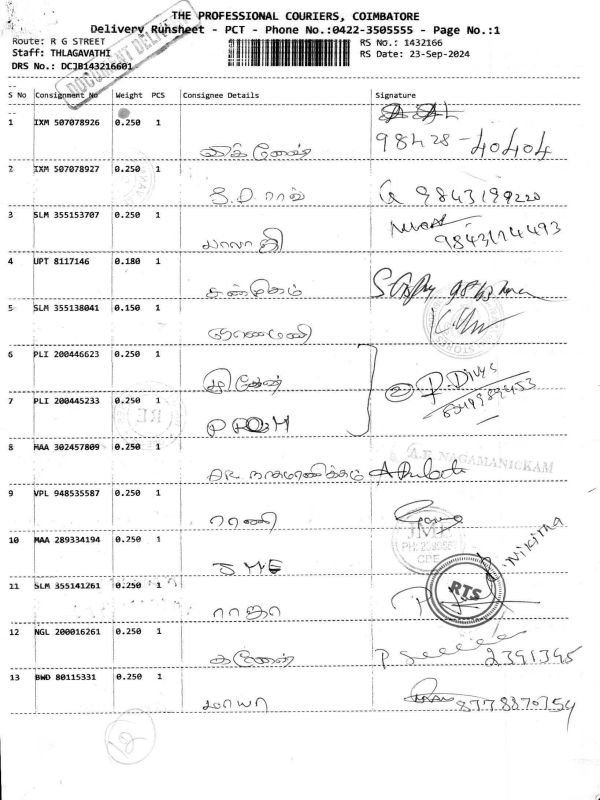 THE PROFESSIONAL COURIERS, COIMBATORE
Delivery Runsheet - PCT - Phone No.:0422-3505555 - Page No.:1
Route: R G STREET
RS No.: 1432166
Staff: THLAGAVATHI
RS Date: 23-Sep-2024
DRS No.: DCJB143216601
S No Consignment No Weight PCS Consignee Details Signature
1 IXM 507078926 0.250 1
விக்னேஷ் 98428-40404
2 IXM 507078927 0.250 1
9843199220
3 SLM 355153707 0.250 1
பாலாஜி 9843174493
4 UPT 8117146 0.180 1
சண்முகம்
5 SLM 355138041 0.150 1
குணமணி
6 PLI 200446623 0.250 1
P. Divya
7 PLI 200445233 0.250 1
8 MAA 302457809 0.250 1
AR நாகமாணிக்கம் A.R. NAGAMANICKAM
9 VPL 948535587 0.250 1
ராணி
10 MAA 289334194 0.250 1
JME JME
Nikitha
11 SLM 355141261 0.250 1
ராஜா RTS
12 NGL 200016261 0.250 1
கணேஷ் 2391395
13 BWD 80115331 0.250 1
மாயா 8778870754